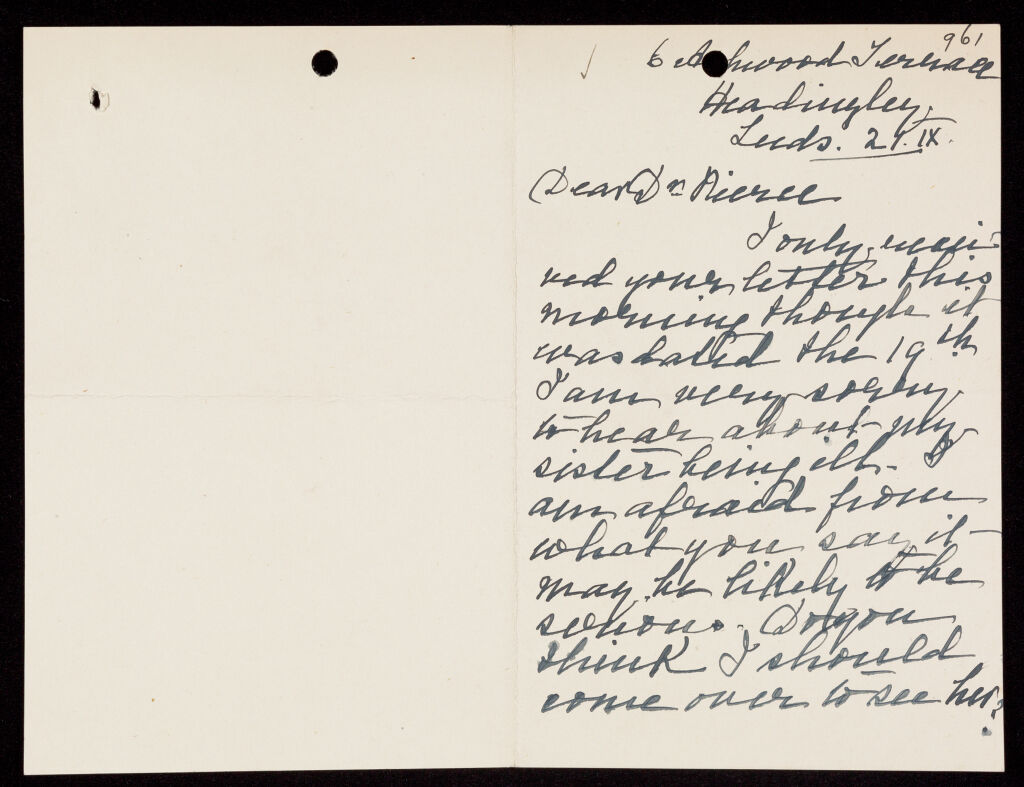 961
6 Ashwood Terrace
Headingley
Leeds. 21.IX.
Dear Dr Pierce
I only recei-
ved your letter this
morning though it
was dated the 19th
I am very sorry
to hear about my
sister being ill. I
am afraid from
what you say it
may be likely to be
serious. Do you
think I should
come over to see her?